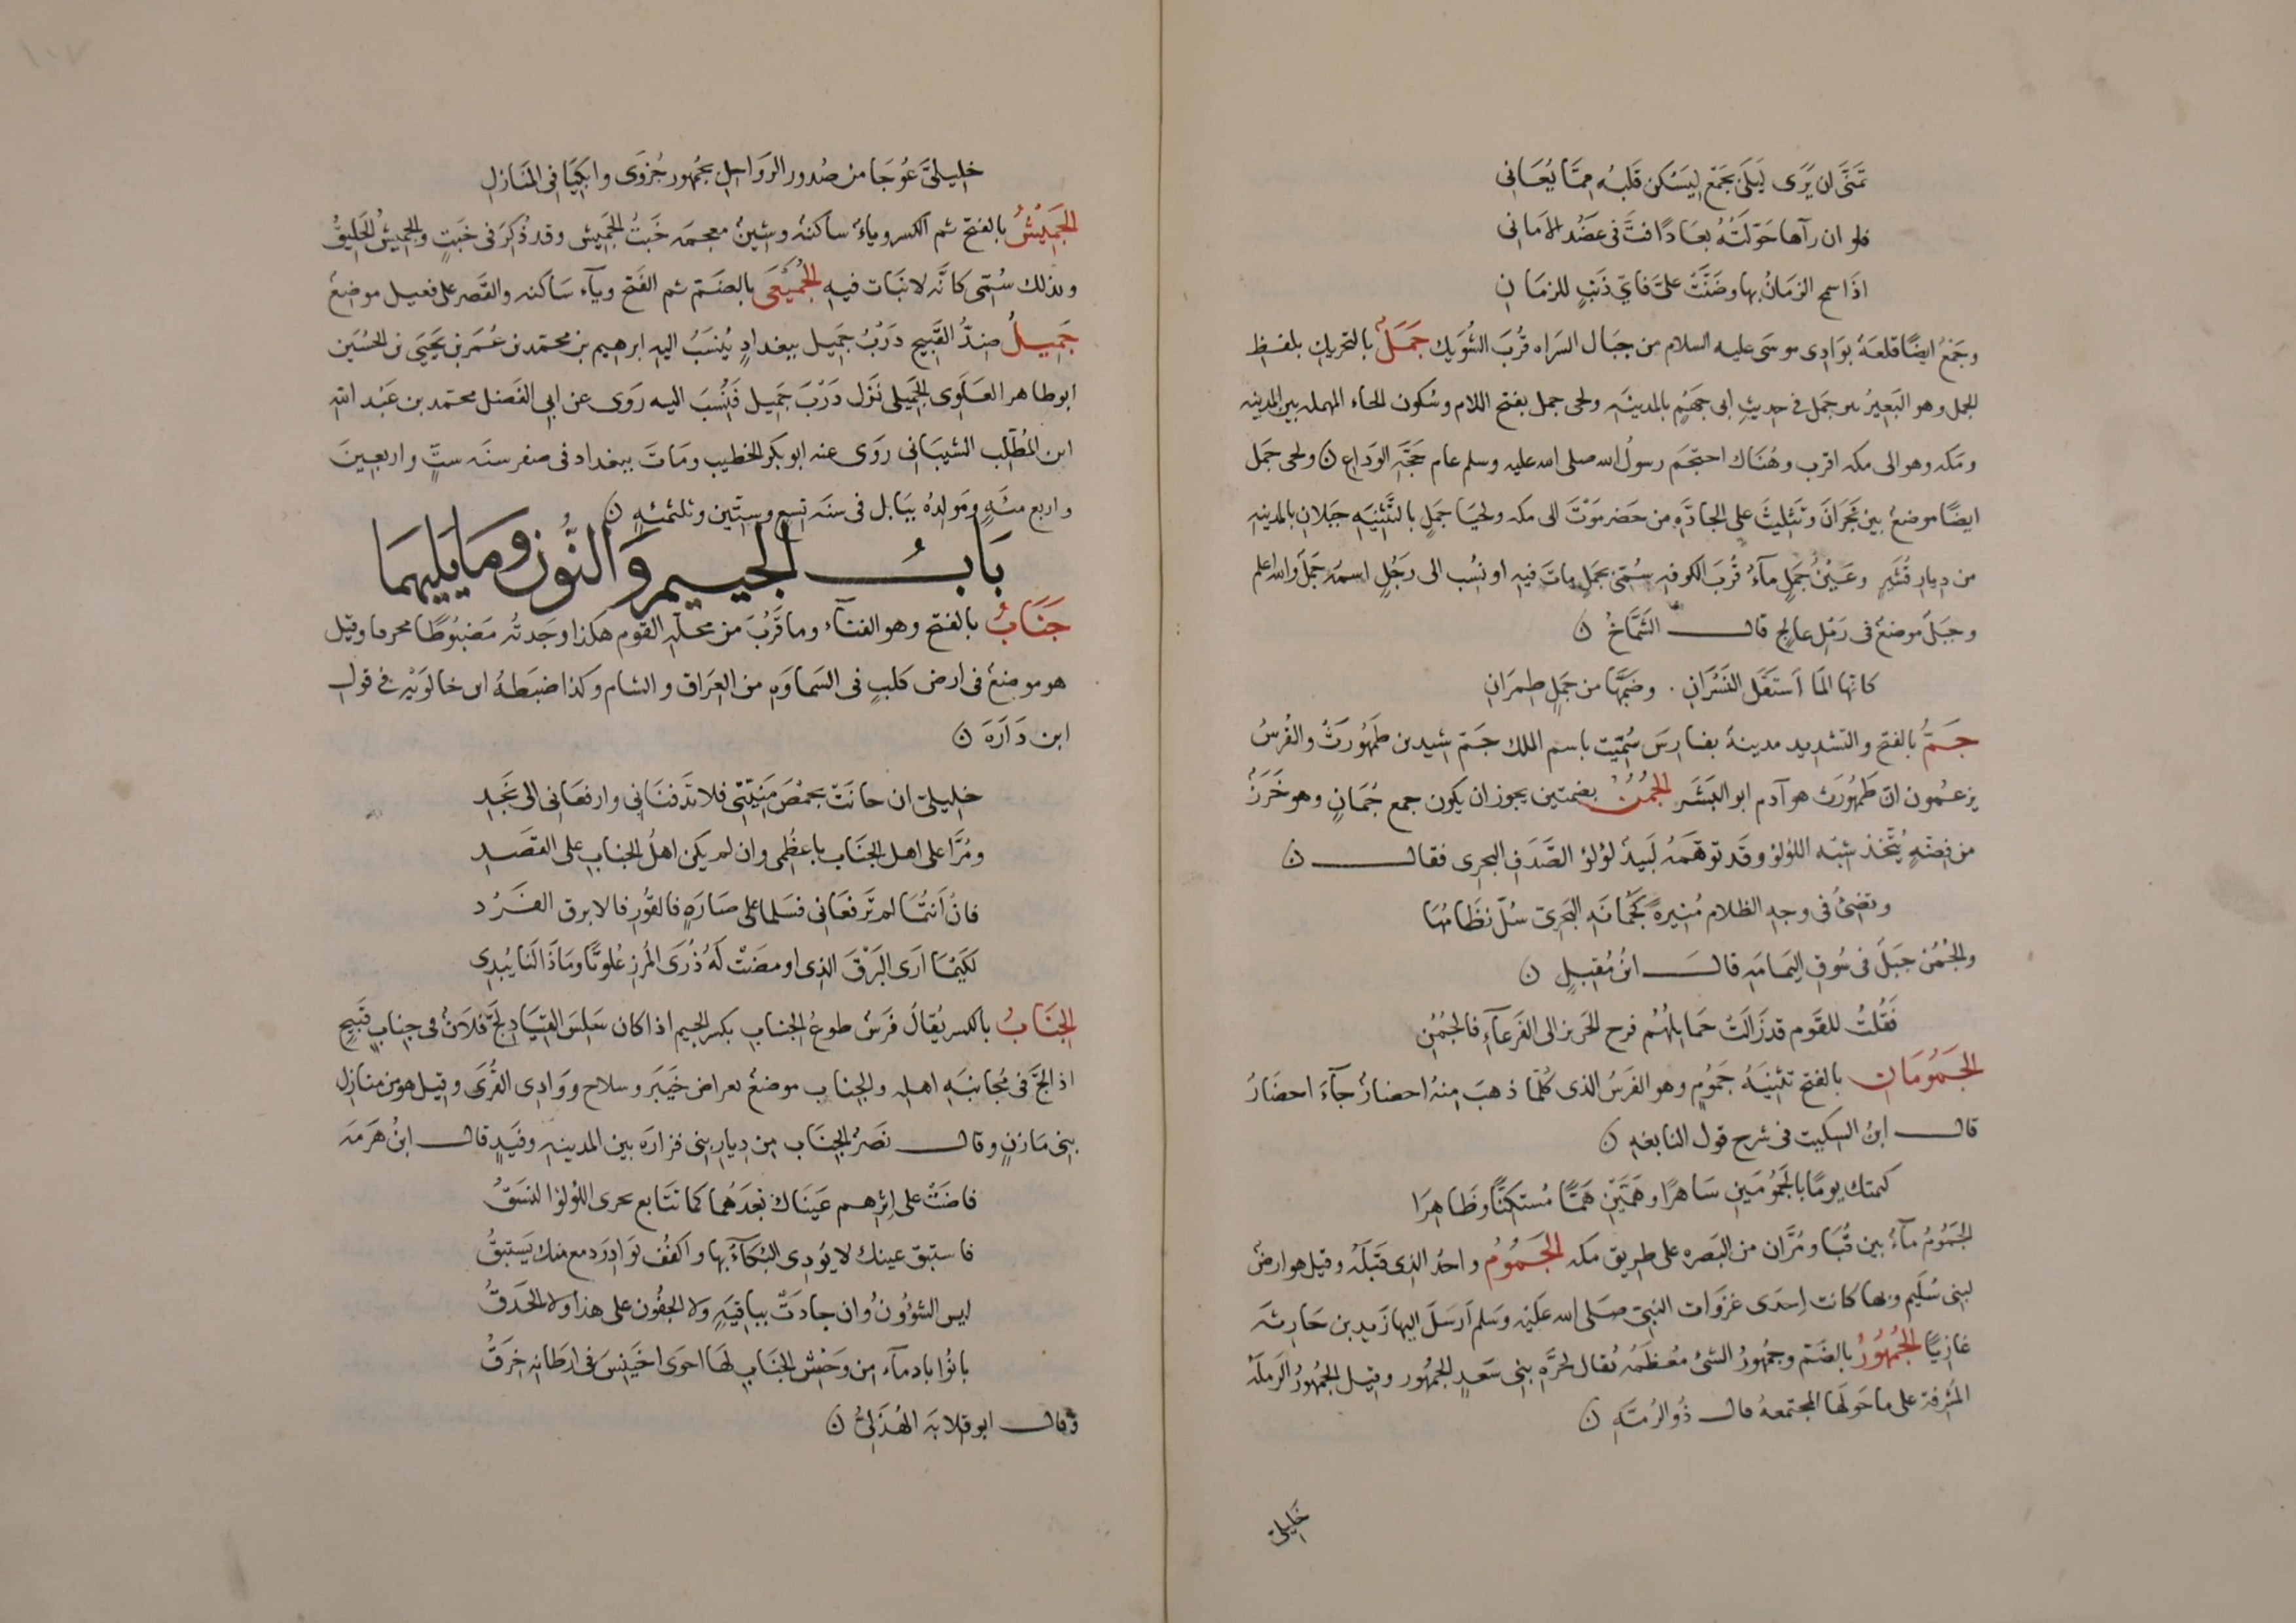 تَمَنَّى ان يَرَى لَيلَى بجَمْعٍ ليَسْكن قَلبُه مِمَّا يُعَانى
فلو ان رآها خَوَّلَتْهُ بعَادًا فَتَّ فى عَضُد الامَانى
اذا سمح الزمَانُ بها وضَنَّتْ علىَّ فاىّ ذَنبٍ للزمَانِ
وجَمْعُ ايضًا قلعَةٌ بوَادِى موسَى عليه السلام من جبَال السَراه قُربَ الشَّوبَك جَمَلٌ بالتحريك بلفظ
الجمل وهو البَعيرُ بير جَمَل فى حديثِ ابى جهَيْم بالمدينَه ولحى جمل بفتح اللام وسُكون الحاء المهمله بين المدينه
ومكه وهو الى مكه اقرب وهُنَاك احتجَم رسولُ الله صلى الله عليه وسلم عام حَجّةِ الوَدَاع ن ولحى جَمَل
ايضًا موضعٌ بين نَجرَانَ وتَثليثَ على الجادَّه من حَضرمَوْتَ الى مكه ولحيَا جَملٍ بالتَّثنيَه جَبَلان بالمدينه
من ديار قُشَيرٍ وعَيْنُ جَمَلٍ مآءٌ قُربَ الكوفه سُمّى بجملٍ ماتَ فيه او نُسِب الى رجُلٍ اسمهُ جَمَل والله اعلم
وجَبَلٌ موضعٌ فى رَمْلِ عالجٍ قال الشَّمَّاخُ ن
كانها لما اَستَقَل النَسْرَانِ . وضَمَّهَا من جَملٍ طِمرَانِ
جَمّ بالفتح والتشديد مدينةٌ بفارسَ سُمّيت باسم الملك جَمّ شيد بن طَهمُورَث والفُرسُ
يزعمُون انّ طَهمُورَث هو آدم ابو البَشَر الجُمُنُ بضمتين يجوز ان يكون جمع جُمَانٍ وهو خَرَزٌ
من فِضّهٍ يُتّخذ شبْه اللؤلؤ وقد توهّمَهُ لَبِيدٌ لؤلؤ الصَّدَفِ البحرِى فقال ن
وتضئ فى وجهِ الظلام مُنِيرةً كجُمَانَهِ البَحرِىّ سُلّ نظَامُهَا
والجُمُنُ جبَلٌ فى سُوقِ اليَمامَه قال ابنُ مُقبلٍ ن
فَقُلتُ للقَوم قد زَالَتْ حَمَائلهُمْ فرح الحزيز الى القَرعَآءِ فالجُمُنِ
الجَمُومَانِ بالفتح تثنيَةُ جَمُومٍ وهو الفرَسُ الذى كُلّما ذهبَ منهُ احضارٌ جآءَ احضَارٌ
قال ابنُ السِكيت فى شرح قول النابغه ن
كَتمتك يومًا بالجَمُومَينِ سَاهرًا وهَمَّيْنِ هَمًّا مُستَكِنًّا وظَاهِرَا
الجَمُومُ مآءٌ بين قُبَا ومُرّان من البَصره على طريق مكه الجَمُومُ واحدُ الذى قَبْلَهُ وقيل هو ارضٌ
لبنى سُلَيم وبها كانت اِحدَى غزَوَات النبىّ صَلى الله عَليْه وَسَلم اَرسَلَ اليها زَيد بن حَارثَه
غازِيًا الجُمهُورُ بالضَمّ وجمهُورُ الشئ مُعظَمُه يُقال لحرَّهِ بنى سَعدٍ الجمهُور وقيل الجُمهُورُ الرَملَه
المُشرِفة على ماحَولَها المجتمعهُ قال ذُو الرُمّه ن
خليلىّ
خليلىَّ عُوجَا من صُدور الرَوَاحِل بجُمهُور حُزوَى وابكيَا فى المنَازلِ
الجَمِيشُ بالفتح ثم الكسر وياءٌ ساكنهٌ وشينٌ معجمَه خَبتُ الجَمِيش وقد ذُكِرَ فى خَبتٍ والجميشُ الحَليقُ
وبذلك سُمّى كانّه لا نبَات فيه الجُمَيْعَى بالضَمّ ثم الفَتح ويآء سَاكنه والقَصر على فعيل موضعٌ
جَمِيلٌ ضِدُّ القَبِيح دَرْبُ جَمِيل ببغدادٍ يُنسَبُ اليه ابرهيم بن محمّد بن عُمَر بن يَحيَى بن الحسُين
ابو طاهر العلَوِى الجَميلى نزَل دَرْبَ جَمِيل فَنُسبَ اليه رَوَى عن ابى الفَضل محمّد بن عَبْد الله
ابن المُطّلِب الشيبَانى روَى عنه ابو بَكر الخطيب ومَاتَ ببغداد فى صفر سنَه ستٍّ واربعينَ
واربع مئَهٍ ومَولدُه ببَابل فى سنَه تسع وستّين وثلثمئهٍ ن
بَابُ الجيم وَالنّون ومَا يَليهمَا
جَنَابٌ بالفتح وهو الفنآء وما قَرُبَ من محلّه القوم هكذا وجَدتُه مَضبُوطًا محرفا وقيل
هو موضعٌ فى ارض كَلبٍ فى السَماوَهِ من العِرَاق والشام وكذا ضبَطهُ ابن خالوَيْه فى قول
ابن دَارَهَ ن
خليلىّ ان حانَتْ بحمْصَ مَنِيّتى فلا تَدفنَانى وارفعَانى الى نَجْدِ
ومُرَّا على اهل الجنَاب باعظُمى وان لم يَكن اهلُ الجنابِ على القَصْدِ
فانْ اَنتُمَا لم تَرفعَانى فسَلما على صَارَهٍ فالقُورِ فالابرق الفَرْدِ
لكَيْمَا ارَى البَرْقَ الذى اومَضَتْ لهُ ذُرَى المُزنِ عُلوِيًّا ومَاذَا لنَا يُبدِى
الجِنَابُ بالكسر يُقالُ فَرسٌ طوعُ الجنابِ بكسر الجيم اذا كان سَلِسَ القيَادِ لجَّ فلانٌ فى جِنابٍ قَبِيحٍ
اذا لجَّ فى مُجانَبَهِ اهله والجناب موضعٌ بعراض خَيبَر وسلاح ووَادِى القُرَى وقيل هو من منازل
بنى مَازنٍ وقال نَصرٌ الجنَاب من ديار بنى فزارَه بين المدينه وفَيدٍ قال ابنُ هَرمَه
فاضَتْ على اِثرِهم عَينَاك بَعدَهُما كما تتَابع بحرى اللؤلؤ النسَقُ
فاستبق عينك لا يُودِى البُكآءُ بها واكفُف بَوَادِرَ دمع منك يَستَبِقُ
ليس الشؤونُ وان جادَتْ بباقيَهٍ ولا الجفُون على هذا ولا الحَدَقُ
بانُوا بادمآء من وَحْش الجنَابِ لَهَا احوَى اُخَينِسُ فى ارطَاتِهِ خَرَقُ
وقال ابو قلابَه الهُذَلىُّ ن